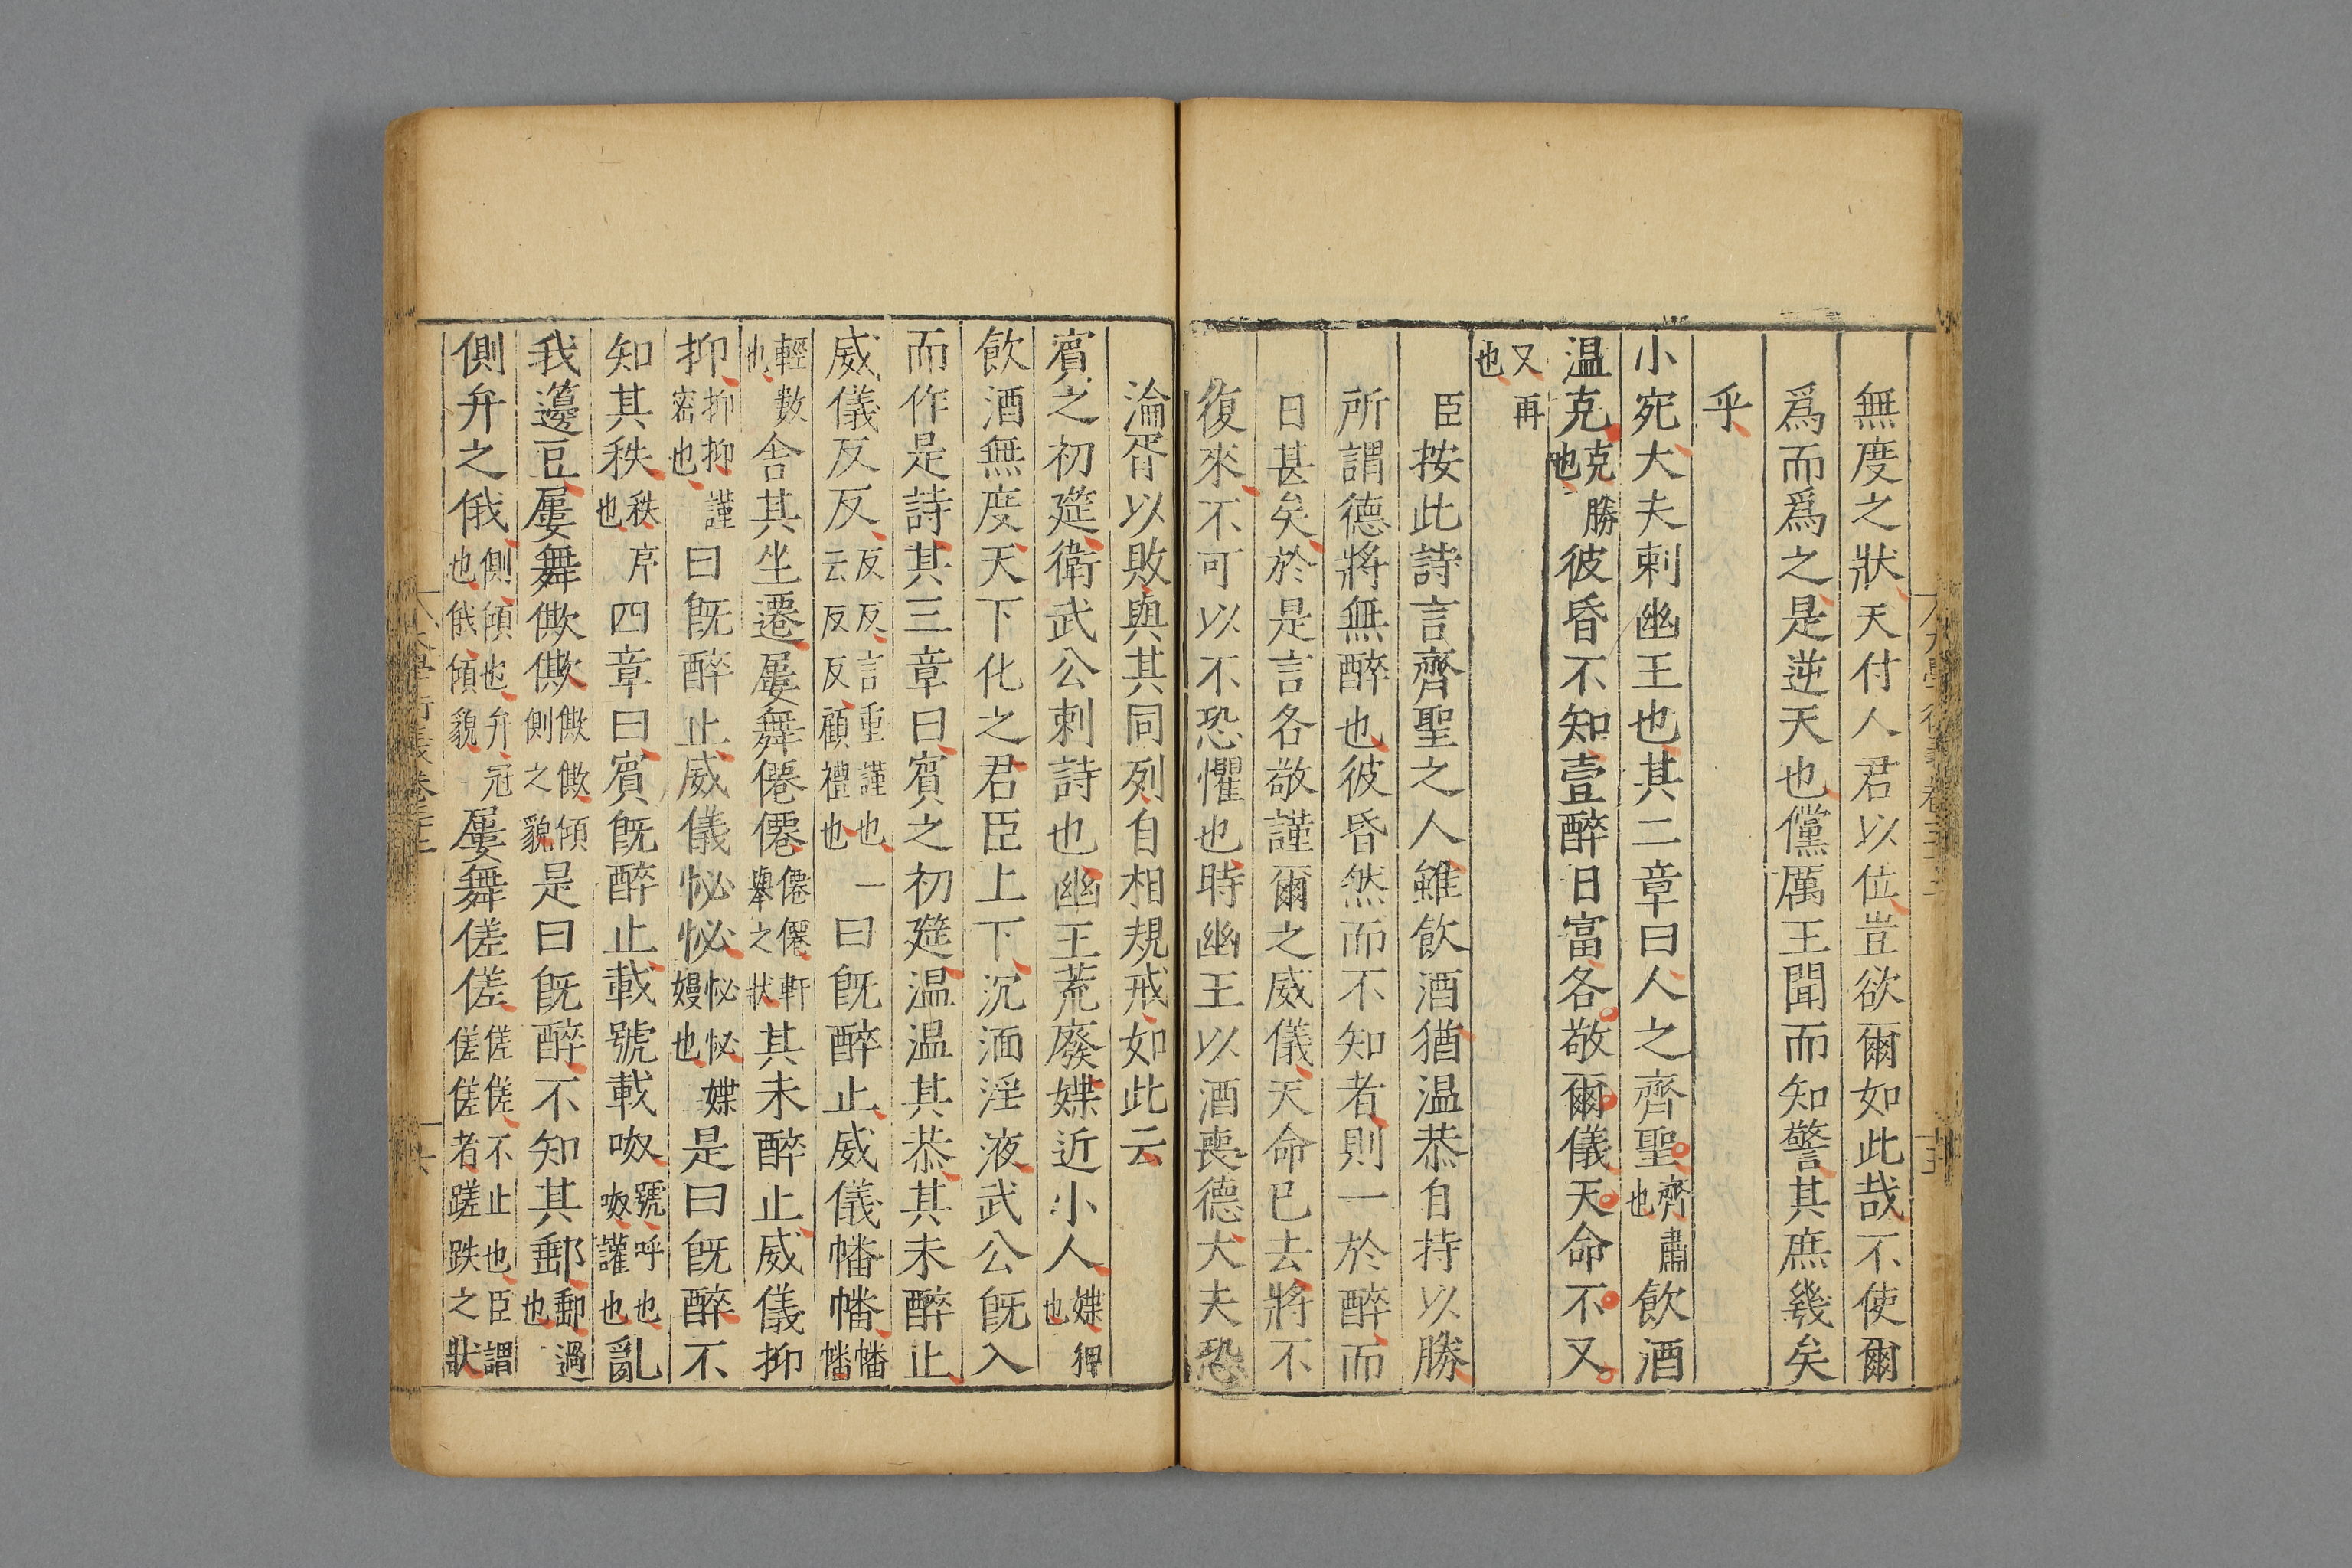 無度之狀天付人君以位豈欲爾如此哉不使爾
爲而爲之是逆天也儻厲王聞而知警其庶幾矣
乎
小宛大夫刺幽王也其二章曰人之齊聖齊肅也飲酒
温克克勝也彼昏不知壹醉日富各敬爾儀天命不又
又再也
臣按此詩言齊聖之人雖飲酒猶温恭自持以勝
所謂德將無醉也彼昏然而不知者則一於醉而
日甚矣於是言各敬謹爾之威儀天命已去將不
復來不可以不恐懼也時幽王以酒喪德大夫恐
淪胥以敗與其同列自相規戒如此云
賓之初筵衛武公刺詩也幽王荒廢媟近小人媟狎也
飲酒無度天下化之君臣上下沉湎淫液武公旣入
而作是詩其三章曰賓之初筵温温其恭其未醉止
威儀反反反反言重謹也一云反反顧禮也曰旣醉止威儀幡幡幡幡
輕數也舍其坐遷屢舞僊僊僊僊軒擧之狀其未醉止威儀抑
抑抑抑謹密也曰旣醉止威儀怭怭怭怭媟嫚也是曰旣醉不
知其秩秩序也四章曰賓旣醉止載號載呶號呼也呶讙也亂
我籩豆屢舞僛僛僛僛傾側之貌是曰旣醉不知其郵郵過也
側弁之俄側傾也弁冠也俄傾貌屢舞傞傞傞傞不止也臣謂傞傞者蹉跌之狀